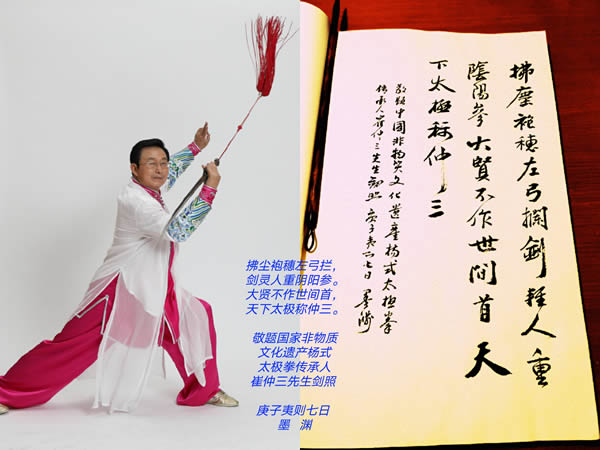 拂尘袍穗左弓拦,
剑灵人重阴阳参。
大贤不作世间首,
天下太极称仲三。
敬题国家非物质
文化遗产杨式
太极拳传承人
崔仲三先生剑照
庚子夷则七日
墨 渊
拂塵袍穗左弓攔劍人重
陰陽參大賢不作世間首天
下太極称仲三
敬题中國非物质文化遺產楊式太極拳
传承人崔仲三先生劍照庚子夷七日墨渊